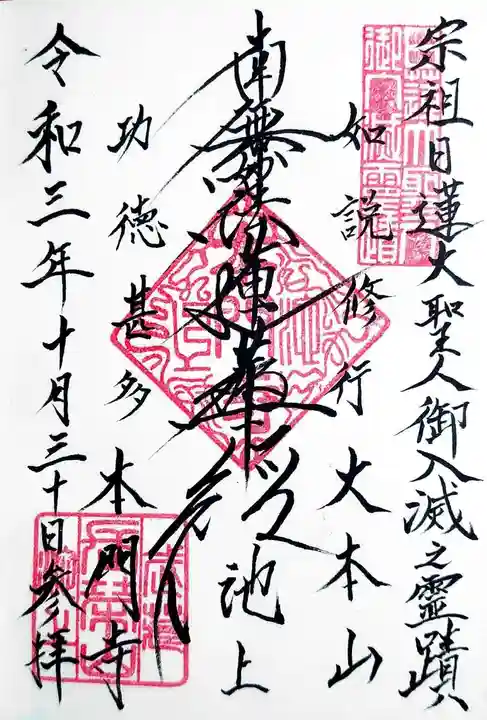 宗祖日蓮大聖人御入滅之霊蹟
如説修行大本山
南無妙法蓮華経
池上
功徳甚多本門寺
令和三年十月三十日参拝